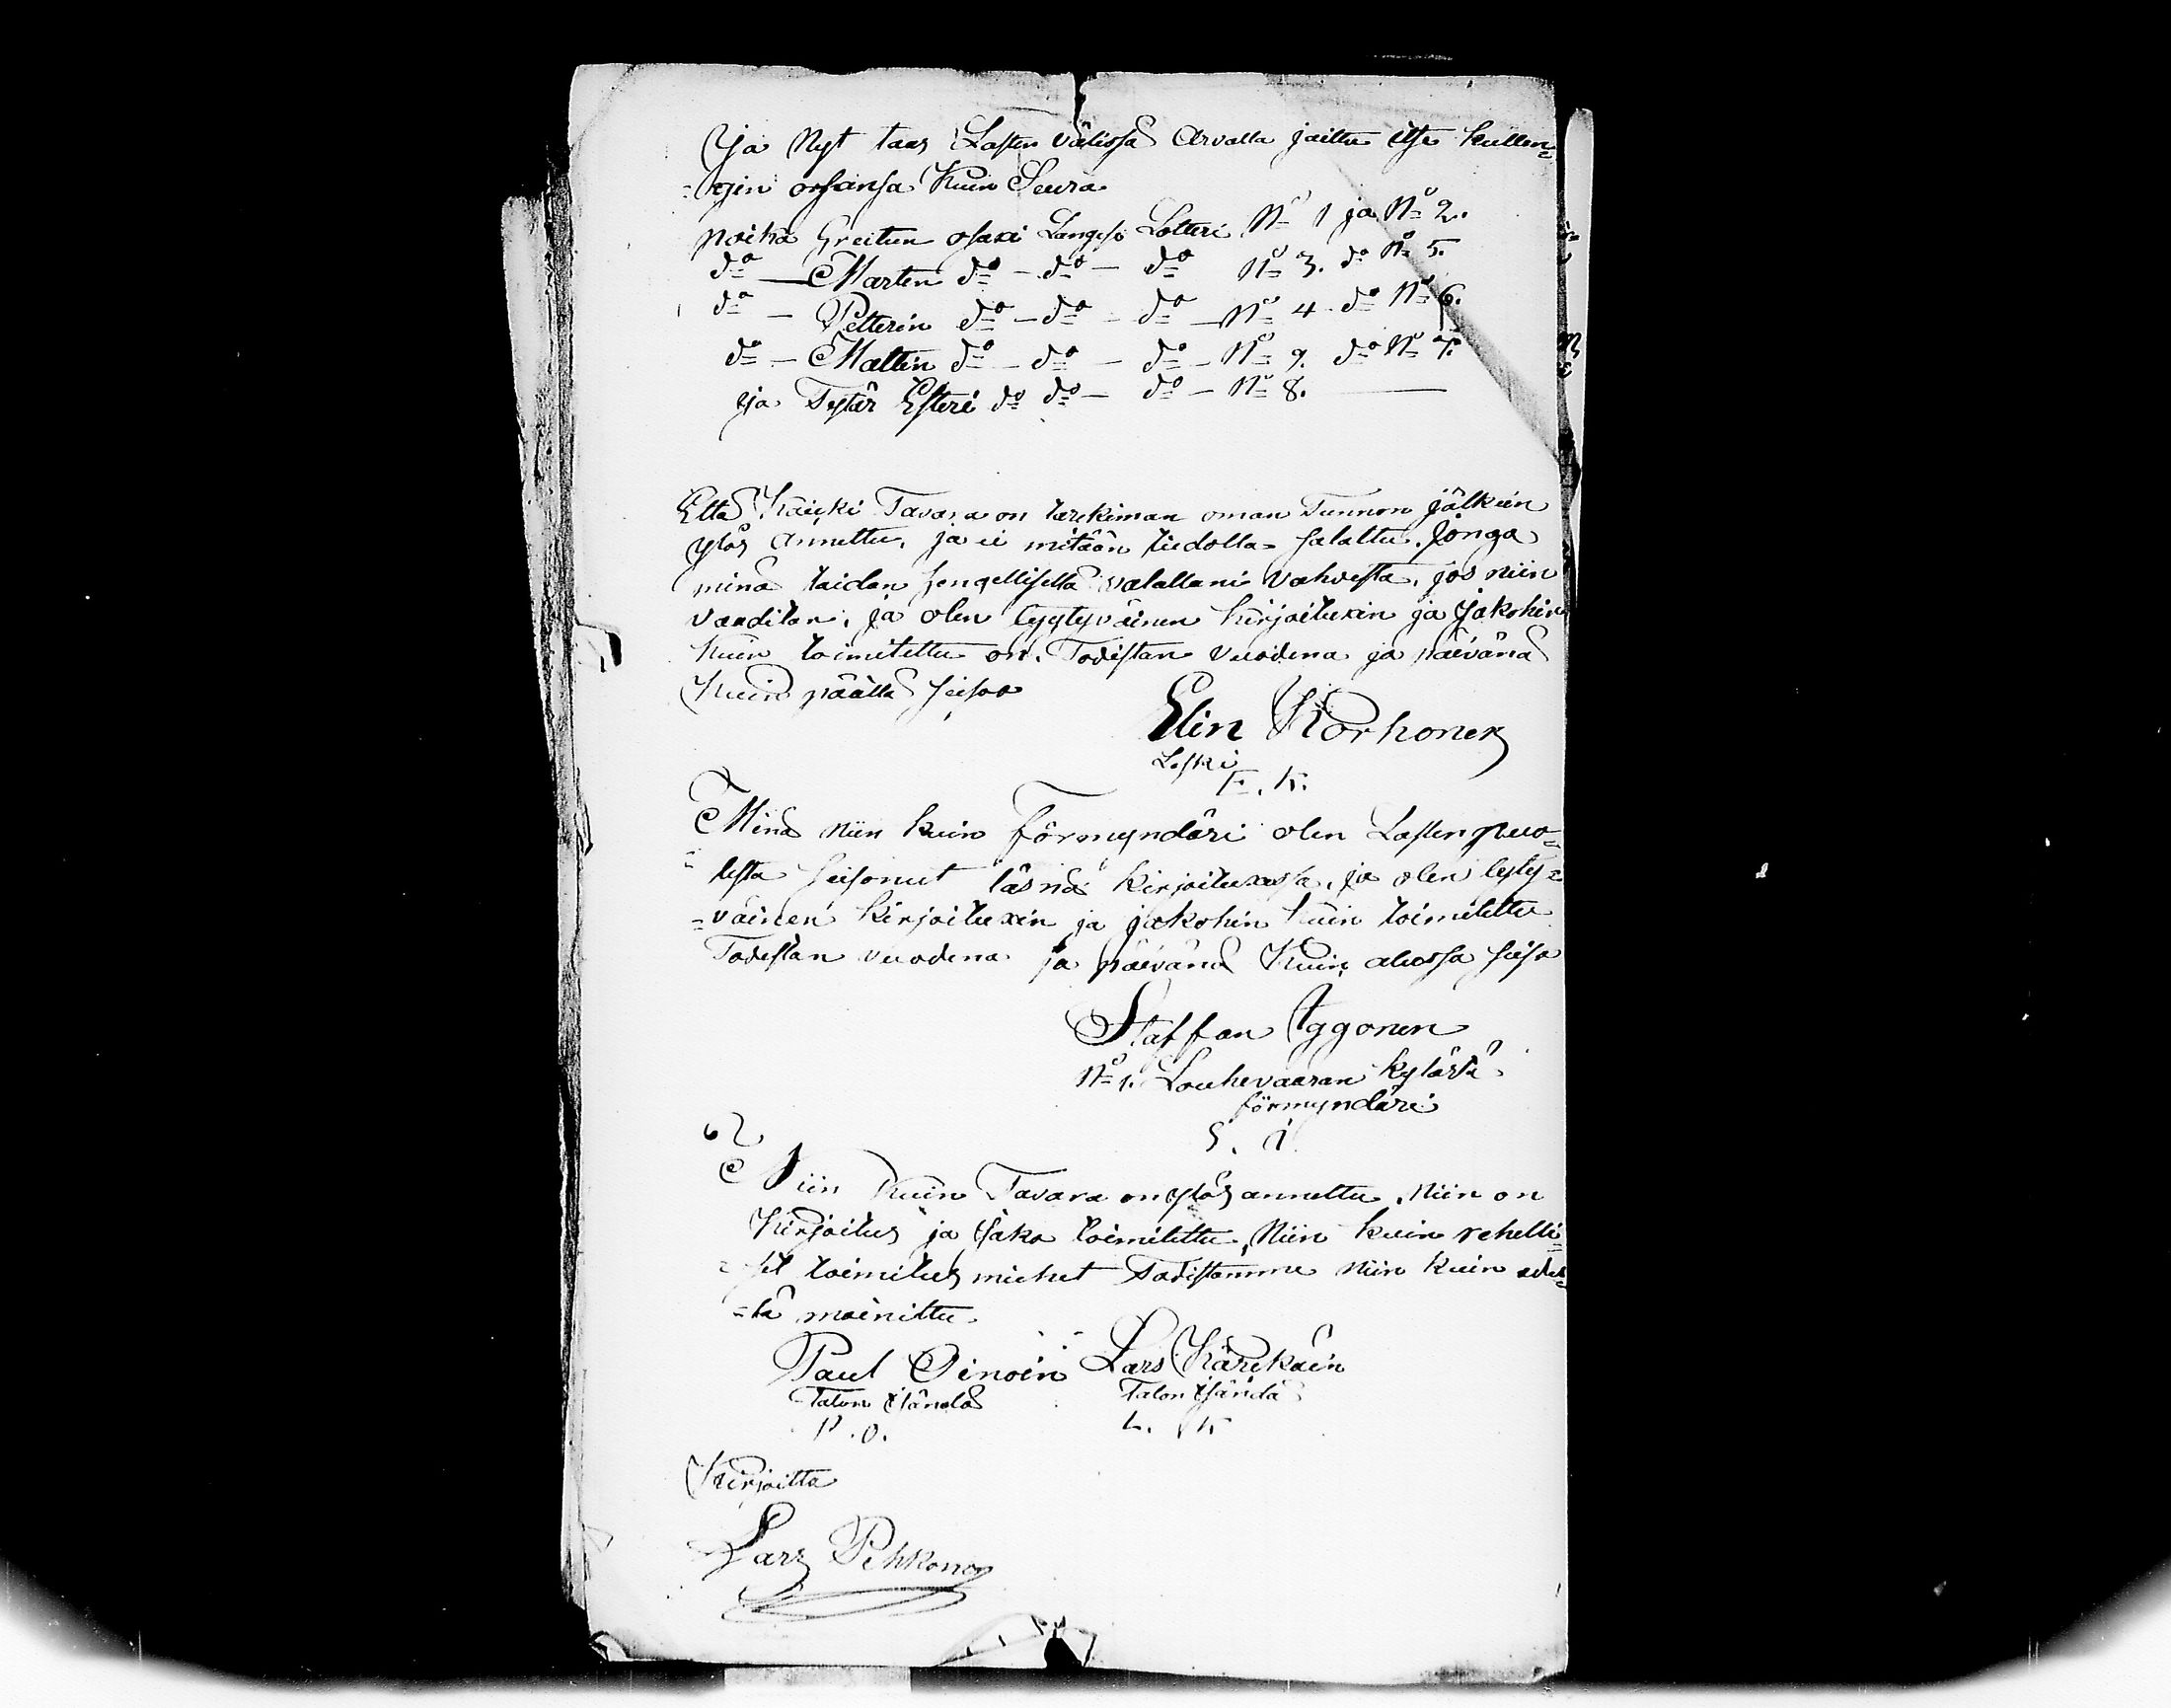 ja Nyt taas Lasten välissä Arvalla jaittu itse kullen=
=gin orsansa Kuin Seura
poika Greitun osaxi Langesi Lotteri No 1 ja No 2.
do — Martin do — do — do No 3. do No 5.
do — Petterin do — do — do — No 4 do No 6.
do — Mattin do — do — do — No 9. do No 7.
ja Tytär Esteri do do — do — No 8.
Että Kaicki Tavara on tarckiman oman Tunnon jälkein
ylös Annettu, ja ei mitään tiedolla= salattu. Jonga
minä taidan sengellisellä valallani vahvista, jos niin
vaaditan, ja olen tyytyväinen kirjoituxin ja Jakohin
kuin toimitettu on. Todistan vuodena ja päivänä
Kuin päällä seisoo
Elin Korhonen
Leski
E. K.
Minä niin kuin Förmyndäri olen Lasten puo=
lesta seisonut läsnä kirjoituxessa, ja olen tyty=
=väinen kirjoituxin ja jakohin kuin toimitettu
Todistan vuodena ja päivänä Kuin alussa seiso
Staffan Iggonen
No 1. Louhevaaran kylästä
förmyndäri
S. I.
Niin kuin Tavara on ylös annettu, niin on
Kirjoitus ja Jako toimitettu, Niin kuin rehelli=
=set toimitus miehet Todistamme niin kuin edes=
=tä mainittu
Paul Oinoin Lars Kärckäin
Talon Isändä Talon Isändä
P. O. L. K
Kirjoitta
Lars Pehkonen